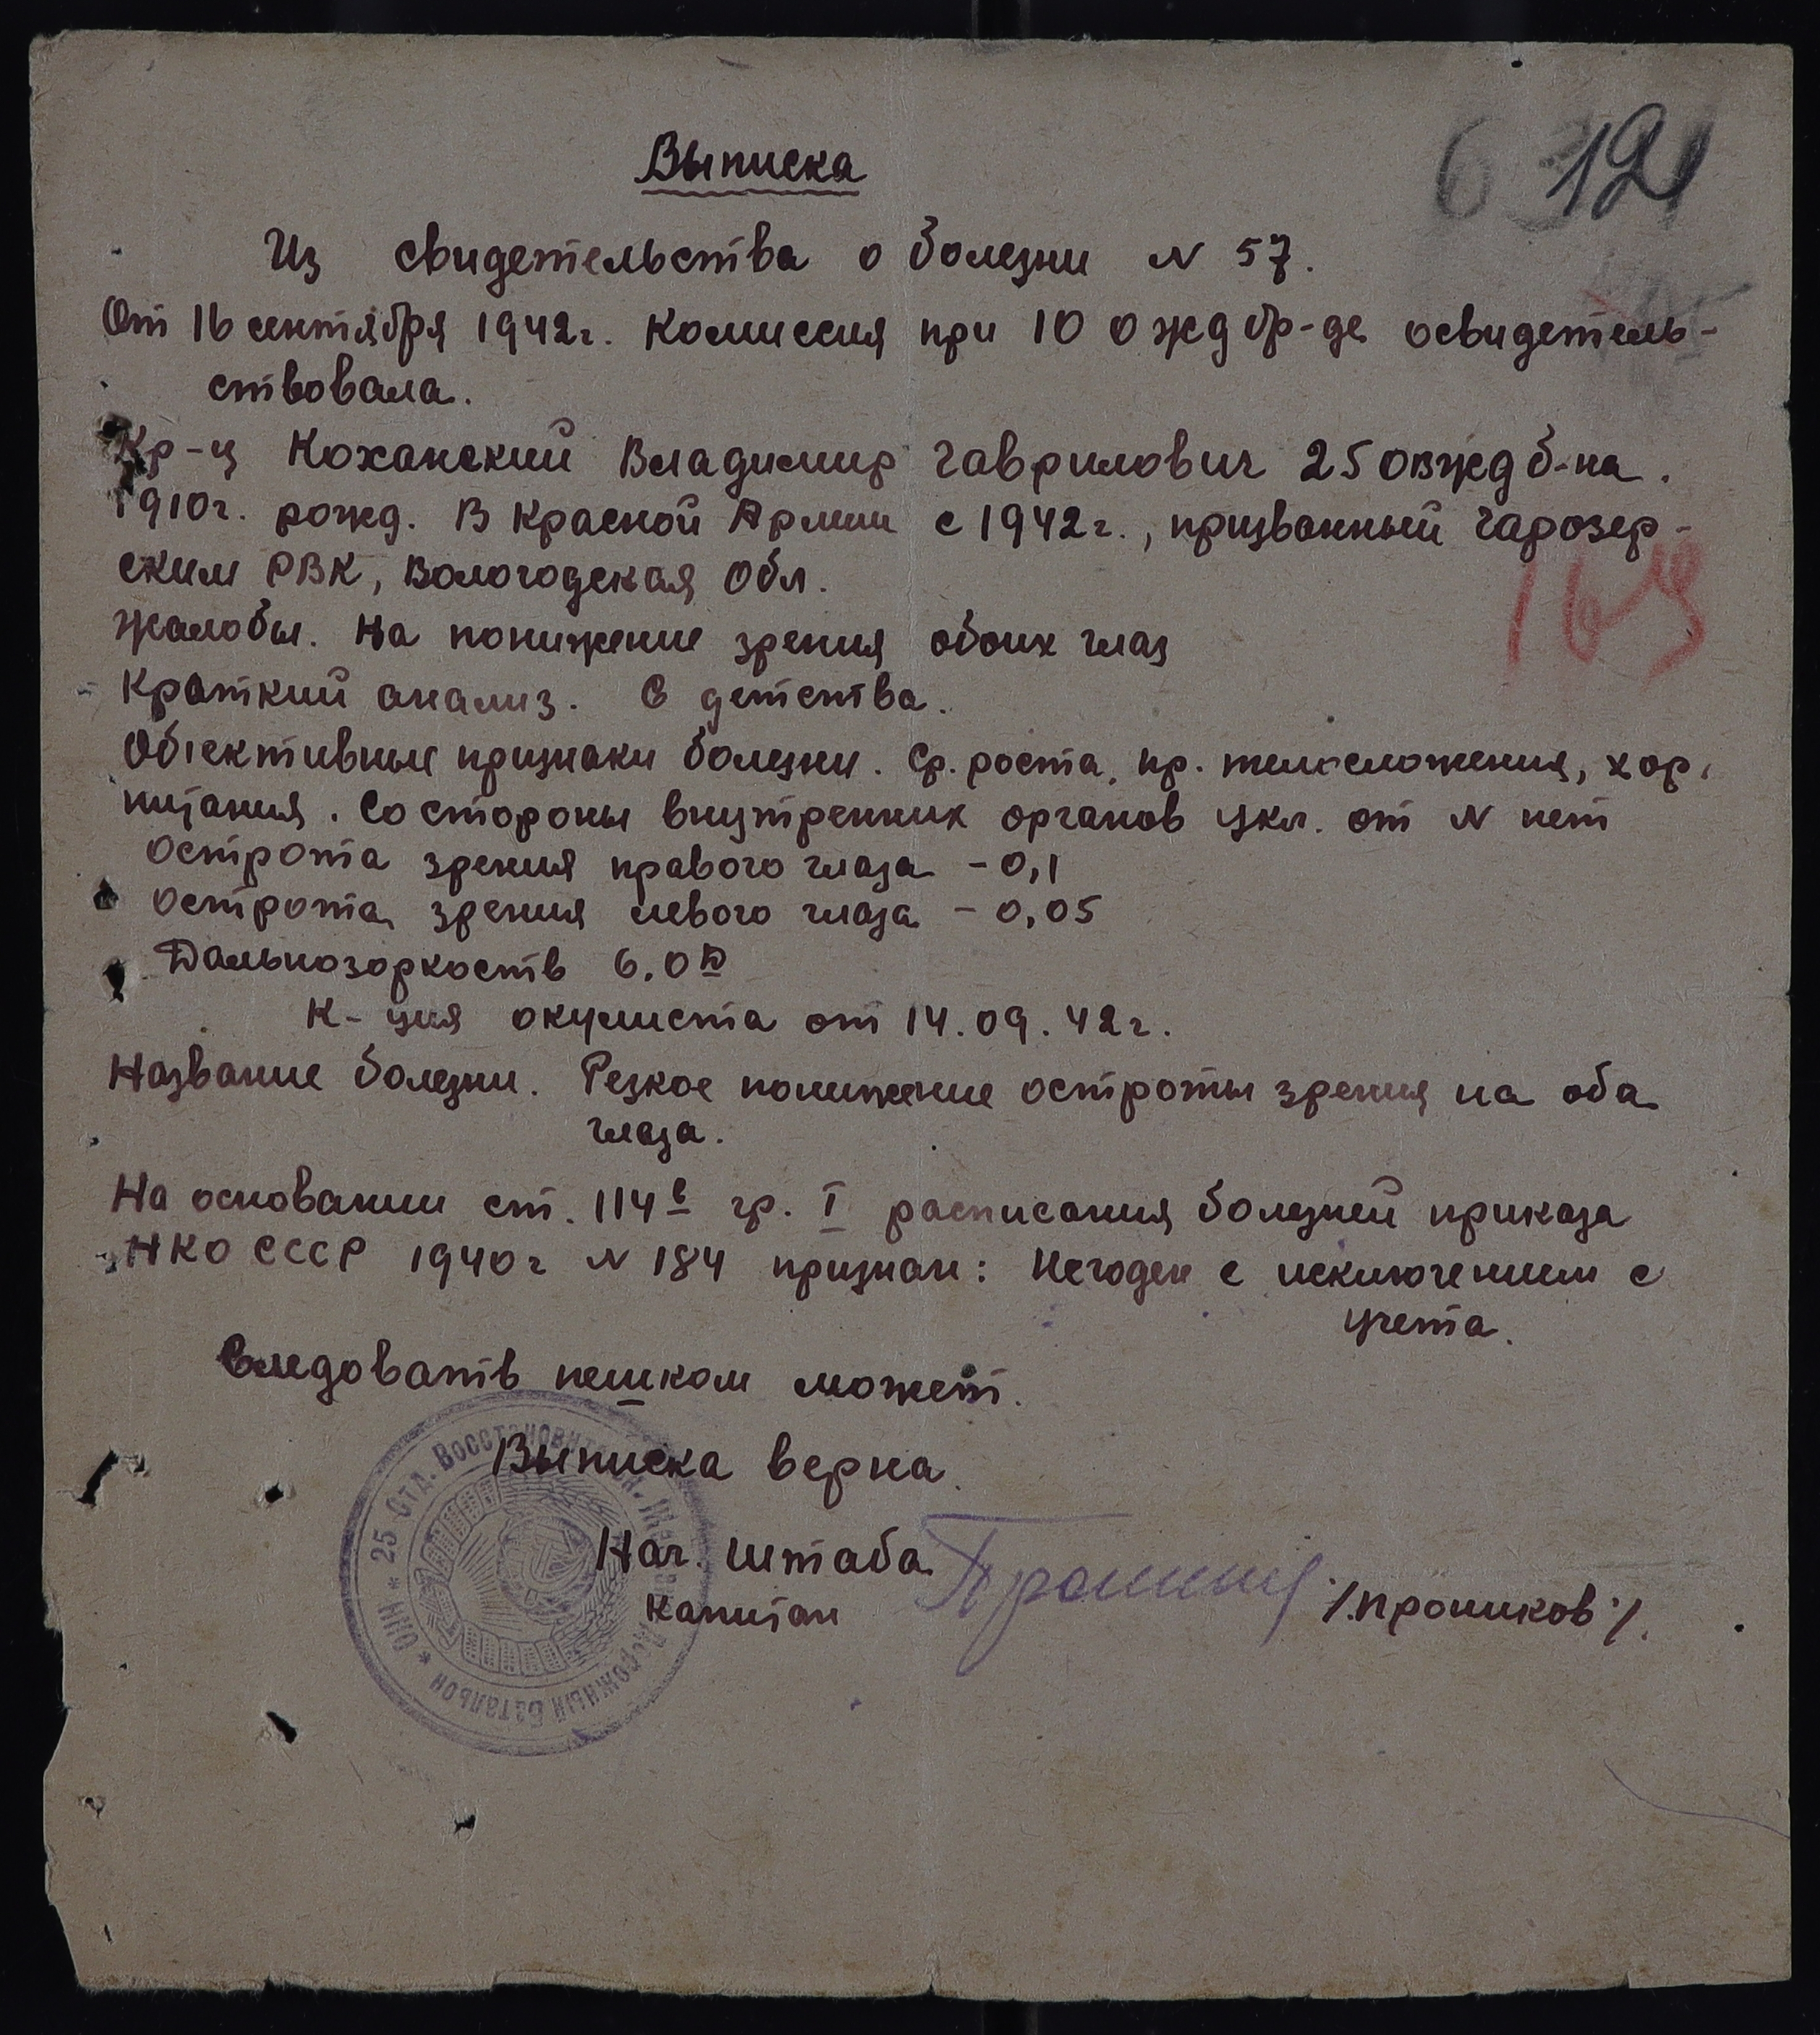 6 121
Выписка
Из свидетельства о болезни N 57.
От 16 сентября 1942г. Комиссия при 10 ожд бр-де освидетель-
ствовала.
Кр-ц Коханский Владимир Гаврилович 25 овжд б-на.
1910г. рожд. В Красной Армии с 1942г., призванный Чарозер-
ским РВК, Вологодская Обл.
Жалобы. На понижение зрения обоих глаз
Краткий анализ. С детства.
Объективные признаки болезни. Ср. роста, пр. телосложения, хор.
питания. Со стороны внутренних органов укл. от N нет
Острота зрения правого глаза - 0,1
Острота зрения левого глаза - 0,05
Дальнозоркость 6.0 D
К-ция окулиста от 14.09.42г.
Название болезни. Резкое понижение остроты зрения на оба
глаза.
На основании ст. 114в гр. I расписания болезней приказа
НКО СССР 1940г N 184 признан: Негоден с исключением с
учета.
Следовать пешком может.
Выписка верна.
Нач. штаба
Капитан /.Прошиков./.
НКО * 25 Отд. Восстановительн. Железнодорожный Батальон *